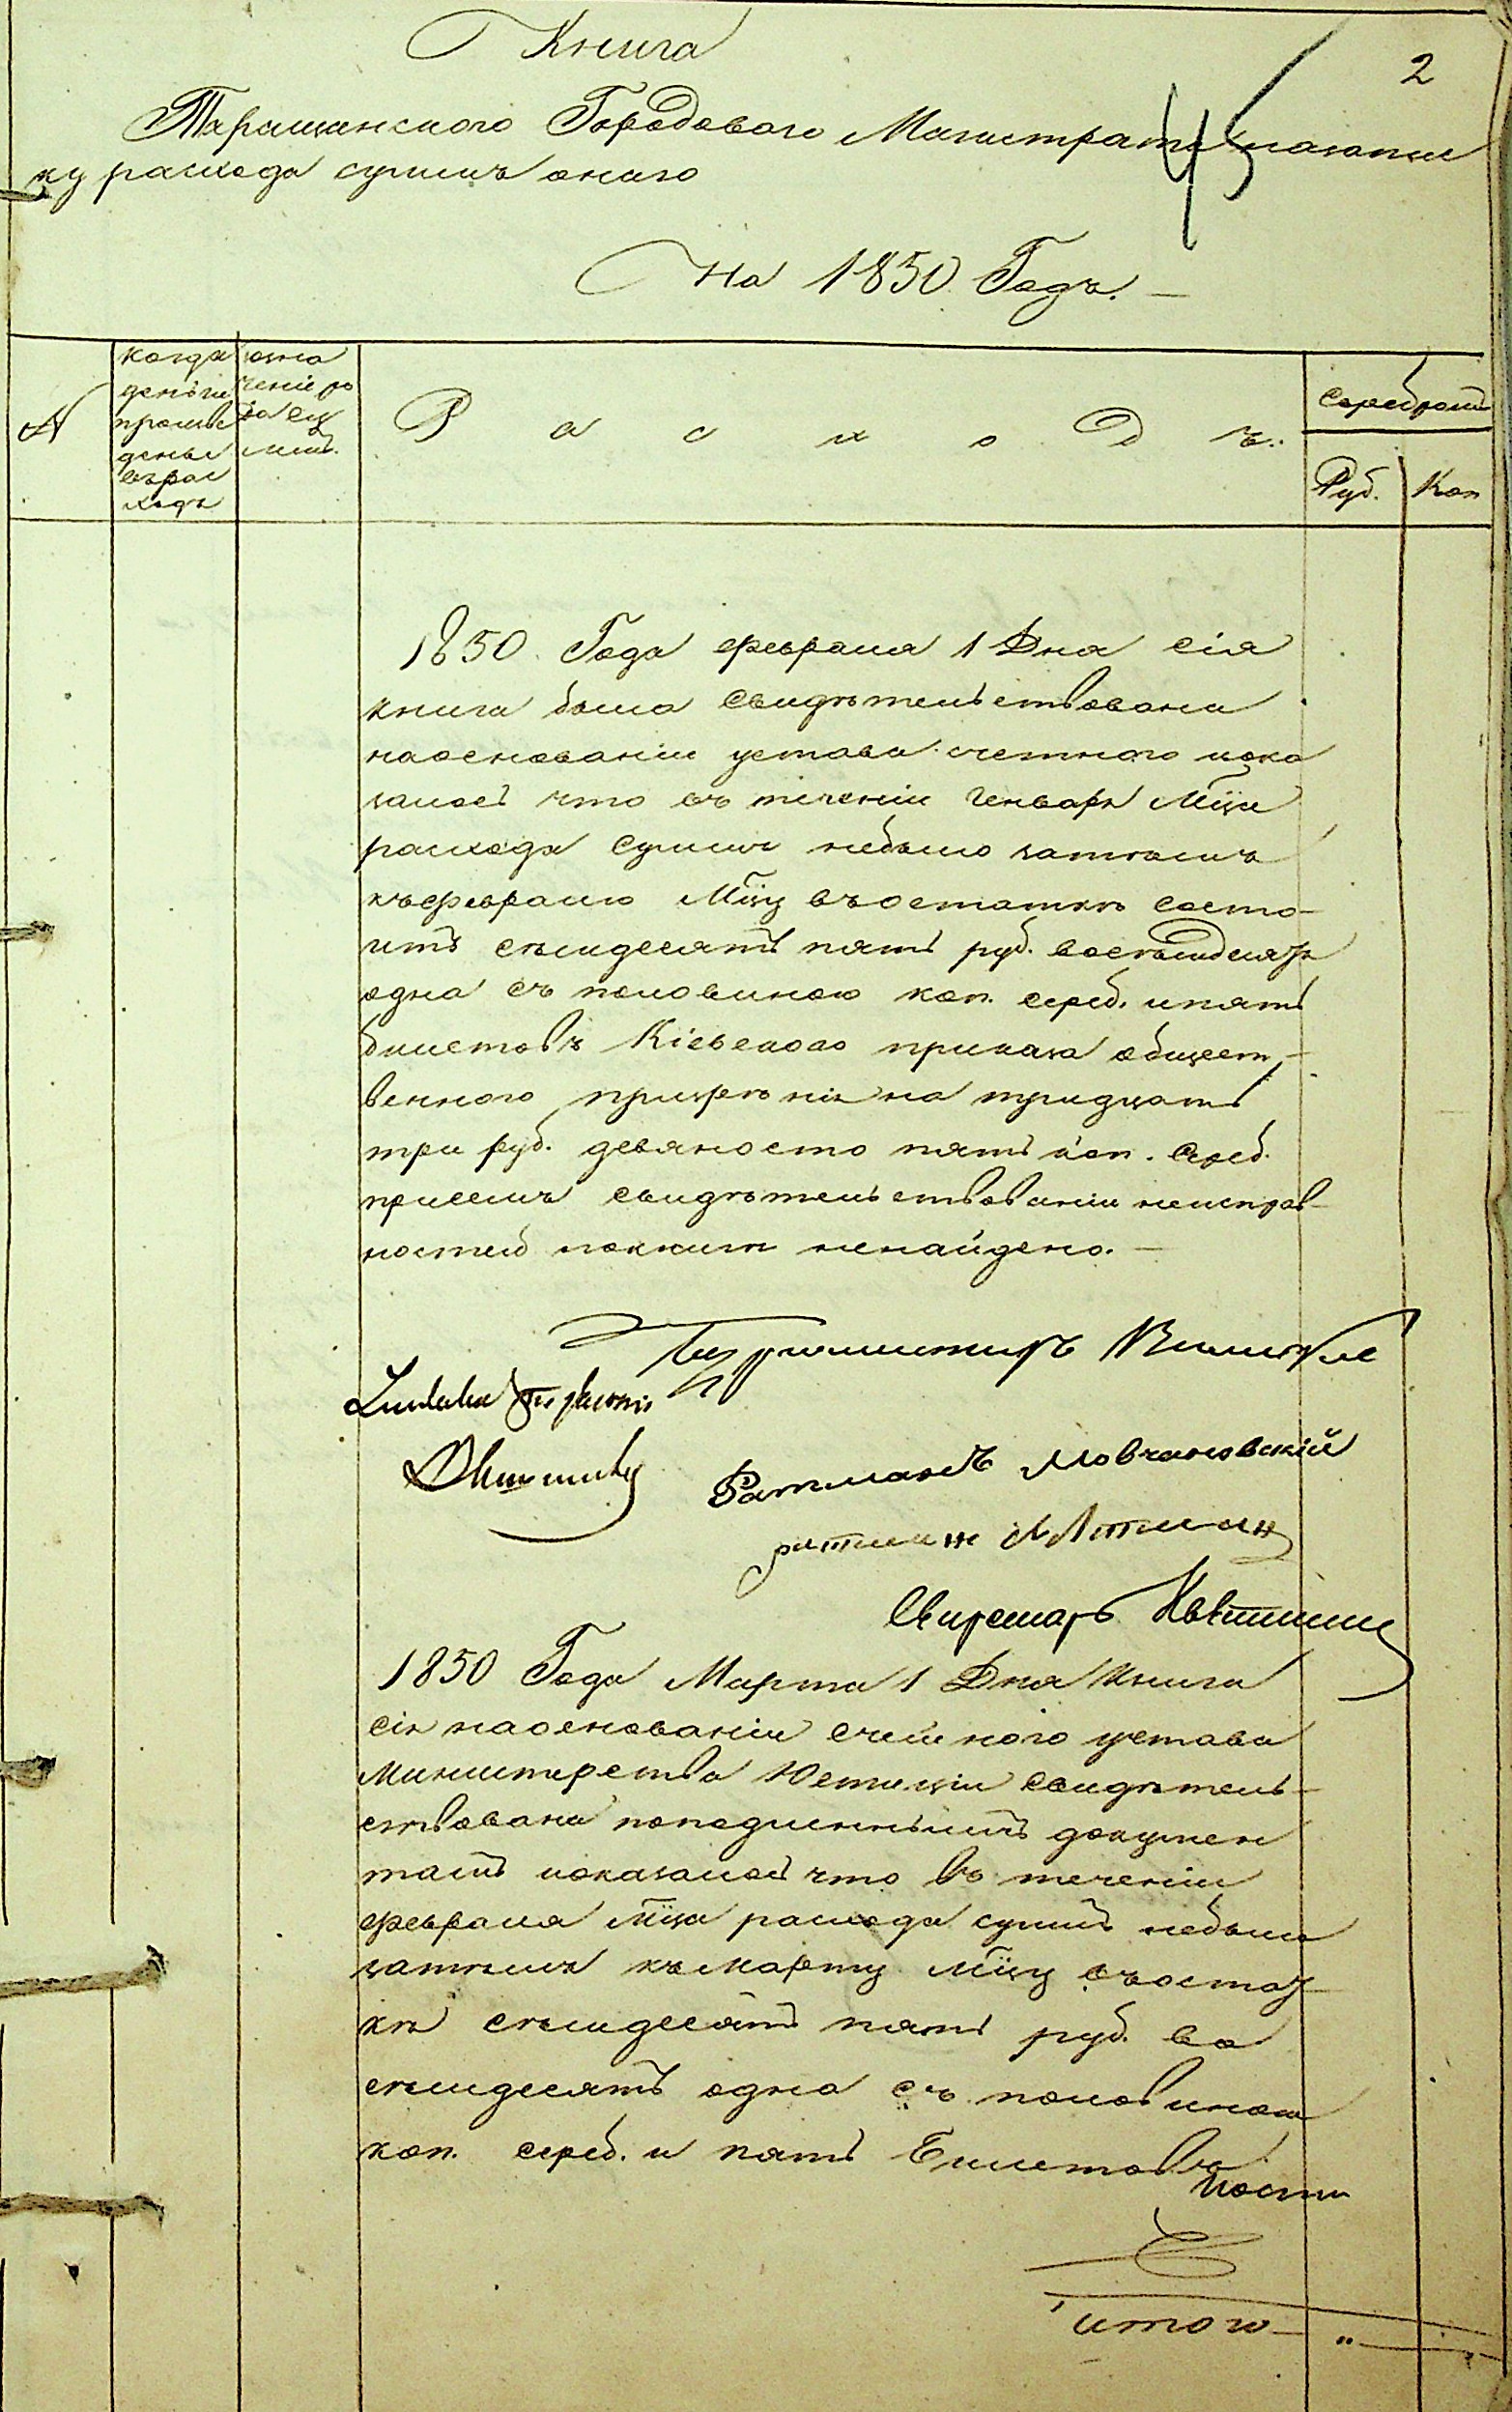 Книга
2
Таращанского Городового Магистрата
45
ку расхода суммъ онаго
На 1850 Годъ.
№
когда деньги произве денье въ рас ходъ
Расходъ.
Серебромъ
Руб. Коп
1850 Года февраля 1 Дня сія
книга была свидѣтельствована
наоснованіи устава счетнаго иока
залось что въ теченіи Генваря Мца
расхода суммъ небыло затѣмъ
къ февралю Мцу въостаткѣ состо-
итъ семидесятъ пять руб. восемьдесятъ
одна съ половиною коп. сереб. ипять
билетовъ Кіевскаго приказа общест-
веннаго призрѣнія на тридцать
три руб. девяносто пять коп. Сереб.
присемъ свидѣтельствованіи неисправ-
ностей покниги ненайдено.—
Бургомистръ
Ратманъ Мовчановскій
ратман
Секретарь
1850 Года Марта 1 Дня Книга
сія наоснованіи Счетнаго устава
Министерства Юстиціи свидѣтель-
ствована поподлиннымъ докумен
тамъ иоказалось что въ теченіи
февраля Мца расхода суммъ небыло
затѣмъ къ марту Мцу въостат-
кѣ семидесятъ пять руб. во
семидесятъ одна съ половиною
коп. сереб. и пять Билетовъ
итого „ „